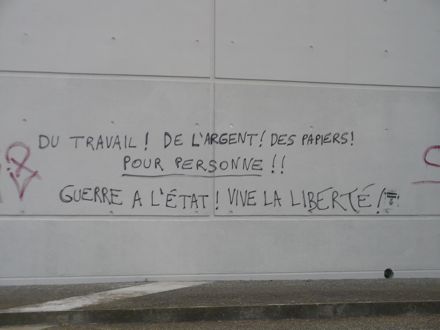 DU TRAVAIL! DE L'ARGENT! DES PAPIERS!
POUR PERSONNE!!
GUERRE A L'ÉTAT! VIVE LA LIBERTÉ!